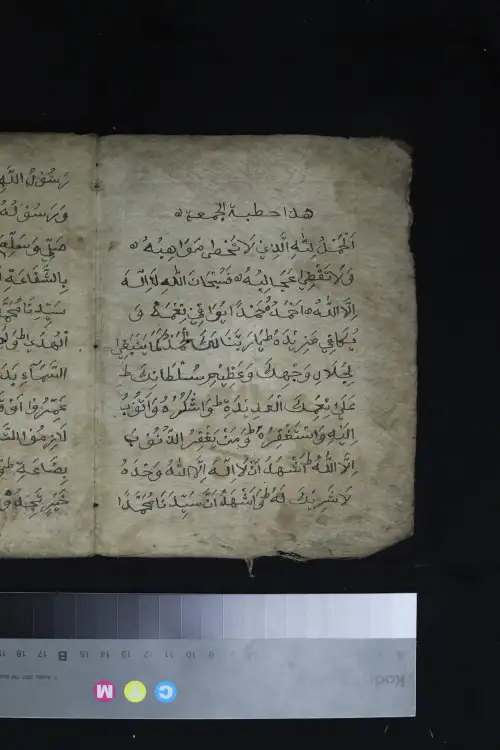 هذا خطبة الجمعة ه
اَلْحَمْدُ لِلّٰهِ الَّذِيْ لَا تُحْصٰى مَوَاهِبُهُ ه
وَلَا تَنْقَضِيْ عَجَائِبُهُ ه فَسُبْحَانَ اللّٰهِ لَا اِلٰهَ
اِلَّا اللّٰهُ ه اَحْمَدُهُ حَمْدًا يُوَافِيْ نِعَمَهُ وَ
يُكَافِيْ مَزِيْدَهُ ط يَا رَبَّنَا لَكَ الْحَمْدُ كَمَا يَنْبَغِيْ
لِجَلَالِ وَجْهِكَ وَعَظِيْمِ سُلْطَانِكَ ط
عَلٰى نِعَمِكَ الْعَدِيْدَةِ ط وَاَشْكُرُهُ وَاَتُوْبُ
اِلَيْهِ وَاَسْتَغْفِرُهُ ط وَمَنْ يَغْفِرُ الذُّنُوْبَ
اِلَّا اللّٰهُ ط اَشْهَدُ اَنْ لَا اِلٰهَ اِلَّا اللّٰهُ وَحْدَهُ
لَا شَرِيْكَ لَهُ ط وَاَشْهَدُ اَنَّ سَيِّدَنَا مُحَمَّدًا
رَسُوْلُ اللّٰهِ
وَرَسُوْلُهُ
صَلِّ وَسَلِّمْ
بِالشَّفَاعَةِ
سَيِّدِنَا مُحَمَّدٍ
السَّمَاءِ
بِضَاعَةٍ
Kod
B
M Y C